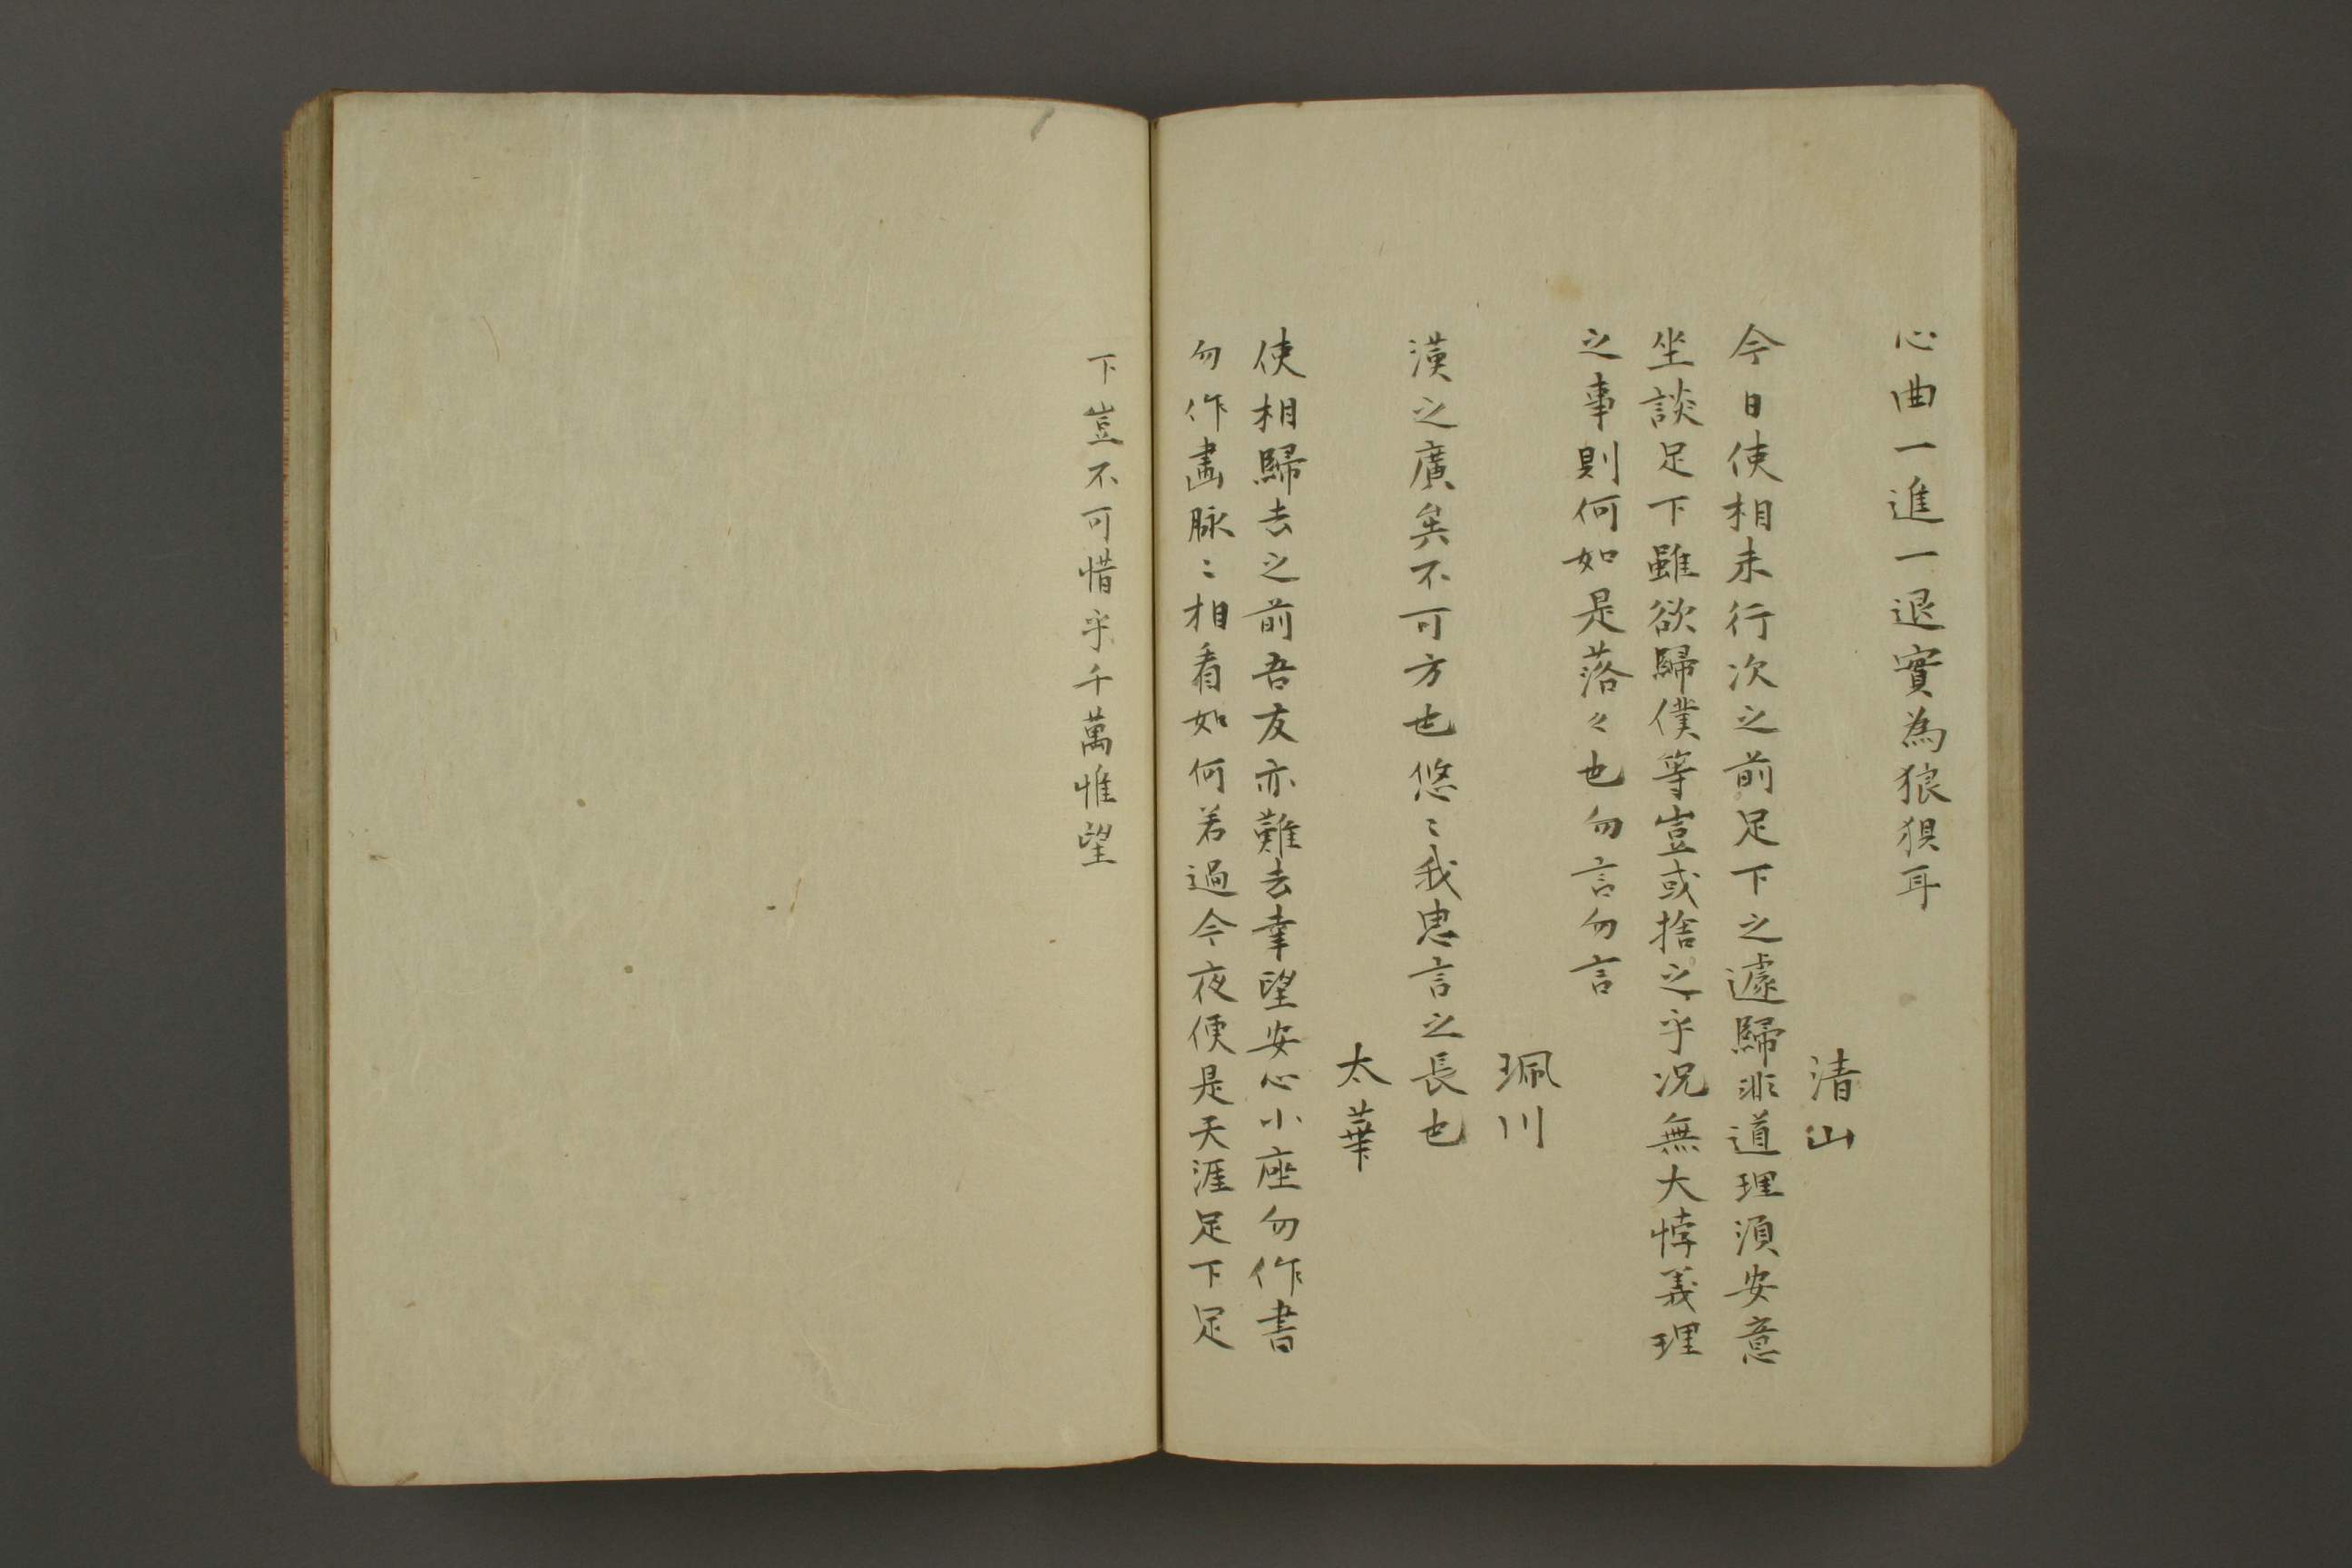 心曲一進一退實為狼狽耳
清山
今日使相未行次之前足下之遽歸非道理須安意
坐談足下雖欲歸僕等豈或捨之乎况無大悖義理
之事則何如是落々也勿言勿言
珮川
漢之廣矣不可方也悠〻我思言之長也
太華
使相歸去之前吾友亦難去幸望安心小座勿作書
勿作畵脉〻相看如何若過今夜便是天涯足下足
下豈不可惜乎千萬惟望